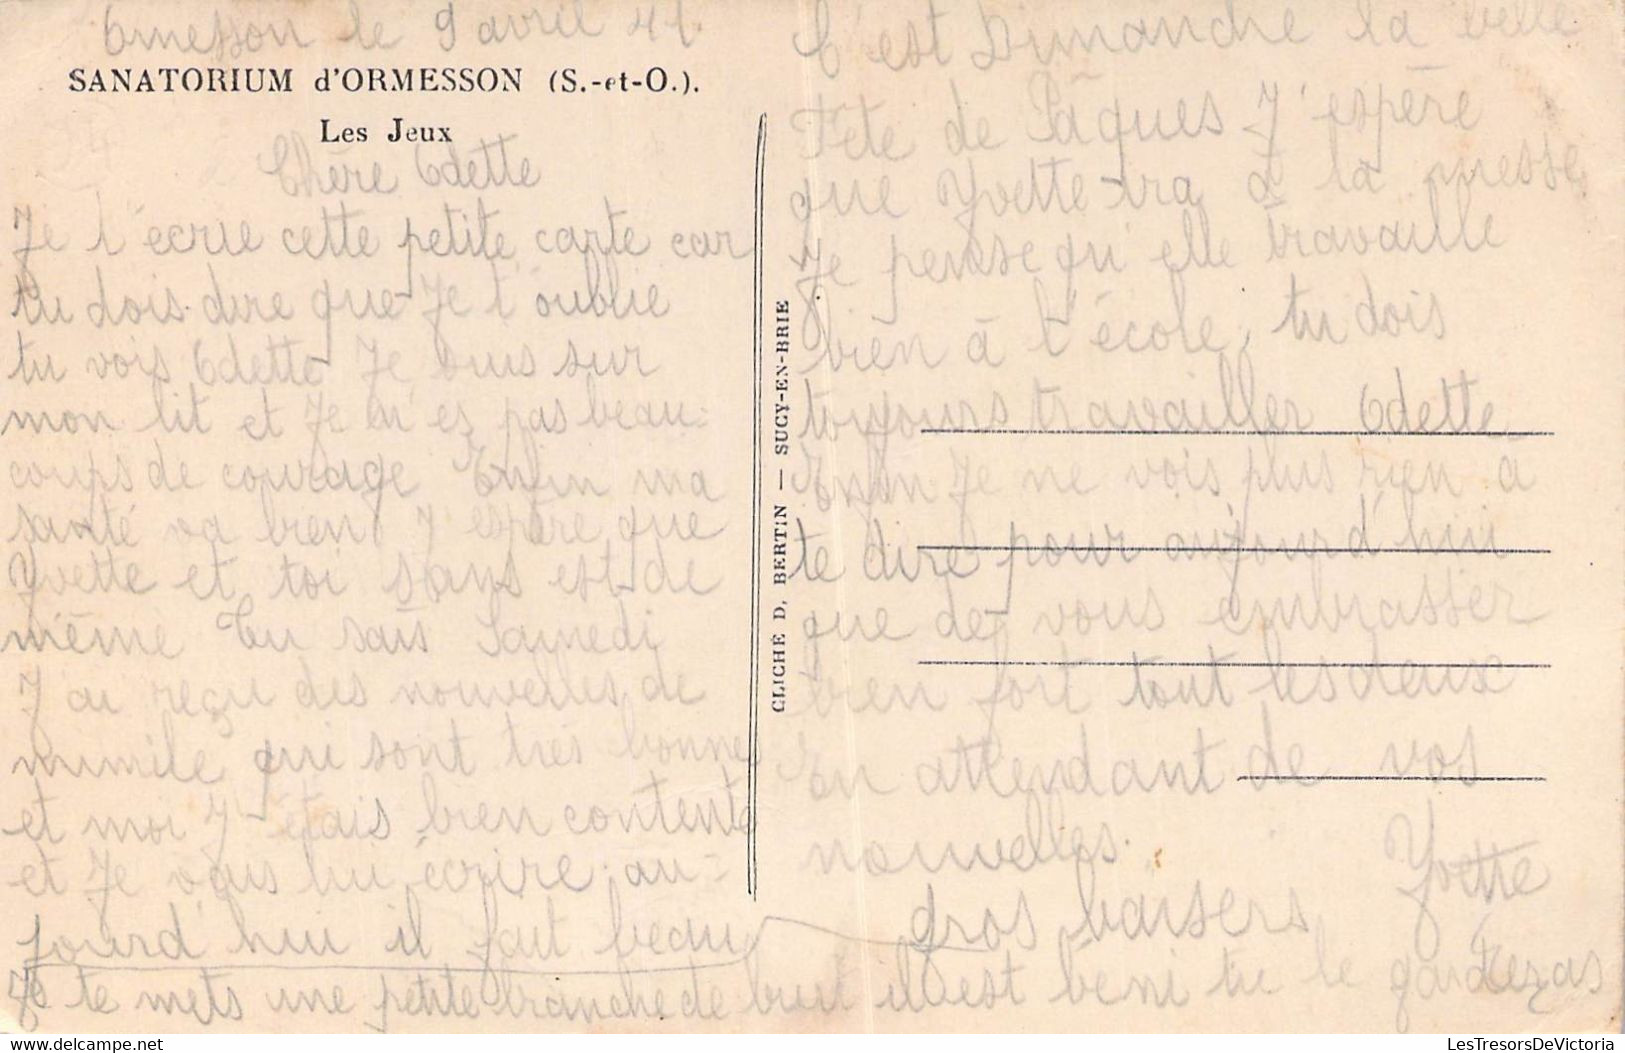 Omesson le 9 avril 41.
SANATORIUM d'ORMESSON (S.-et-O.).
Les Jeux
Chère Odette
Je t'écrie cette petite carte car
tu dois dire que Je t'oublie
tu vois Odette Je suis sur
mon lit et Je n'es pas beau-
coups de courage Enfin ma
santé va bien J'espère que
Yvette et toi sans est de
même Tu sais Samedi
J'ai reçu des nouvelles de
mimile qui sont très bonnes
et moi J'étais bien contente
et Je vais lui écrire au-
jourd'hui il fait beau
CLICHÉ D. BERTIN — SUCY-EN-BRIE
C'est Dimanche la belle
Fête de Pâques J'espère
que Yvette ira à la messe
Je pense qu'elle travaille
bien à l'école, tu dois
toujours travailler Odette
Enfin Je ne vois plus rien à
te dire pour aujourd'hui
que de vous embrasser
bien fort tout les deux
En attendant de vos
nouvelles.
gros baisers Yvette
Je te mets une petite branche de buis il est béni tu le garderas
LesTresorsDeVictoria